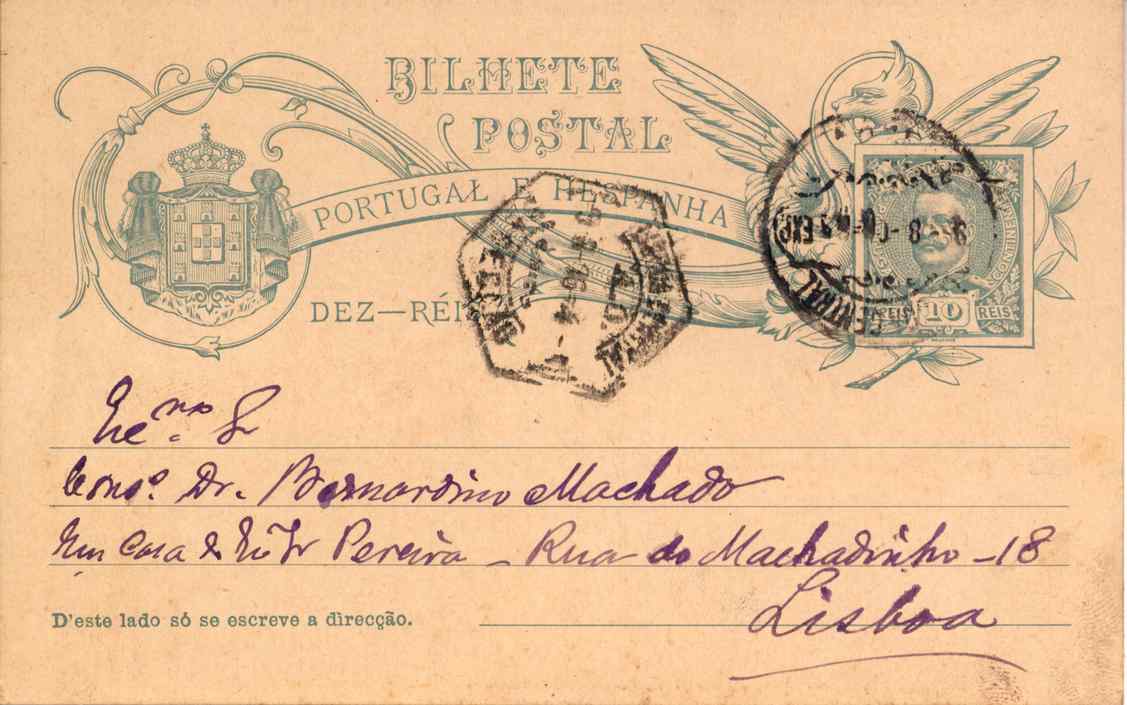 BILHETE
POSTAL
PORTUGAL E HESPANHA
DEZ—RÉI
CENTRAL
CONTINENTE
REIS 10 REIS
Exᵐᵒ. Sr
Consº. Dr. Bernardino Machado
Em casa do Exº Sr Pereira – Rua do Machadinho – 18
Lisboa
D'este lado só se escreve a direcção.